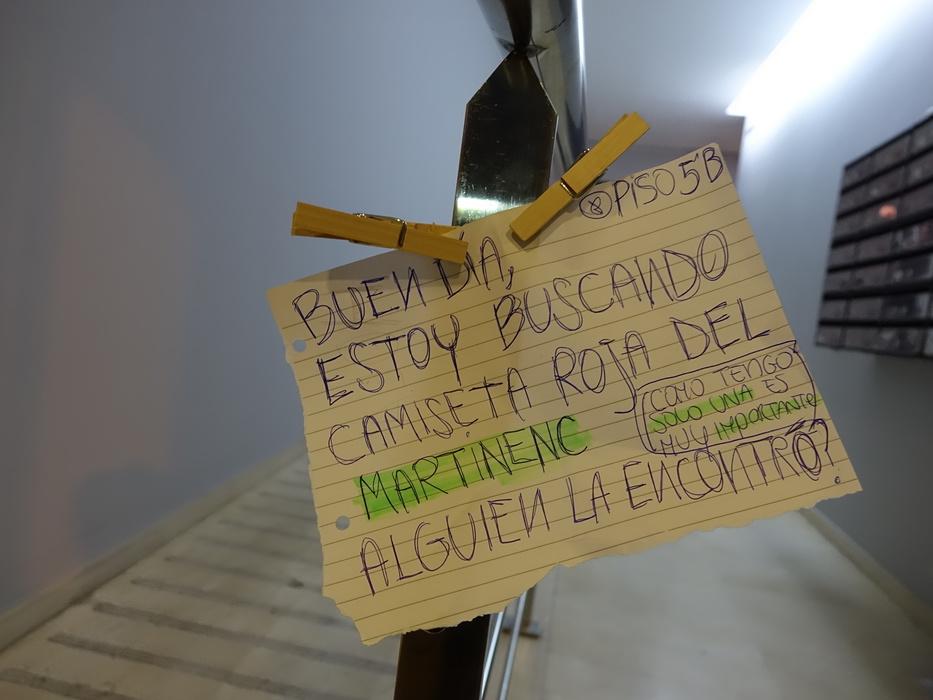 PISO 5ºB
BUEN DÍA,
ESTOY BUSCANDO
CAMISETA ROJA DEL
MARTINENC
COMO TENGO
SOLO UNA ES
MUY IMPORTANTE
ALGUIEN LA ENCONTRÓ?